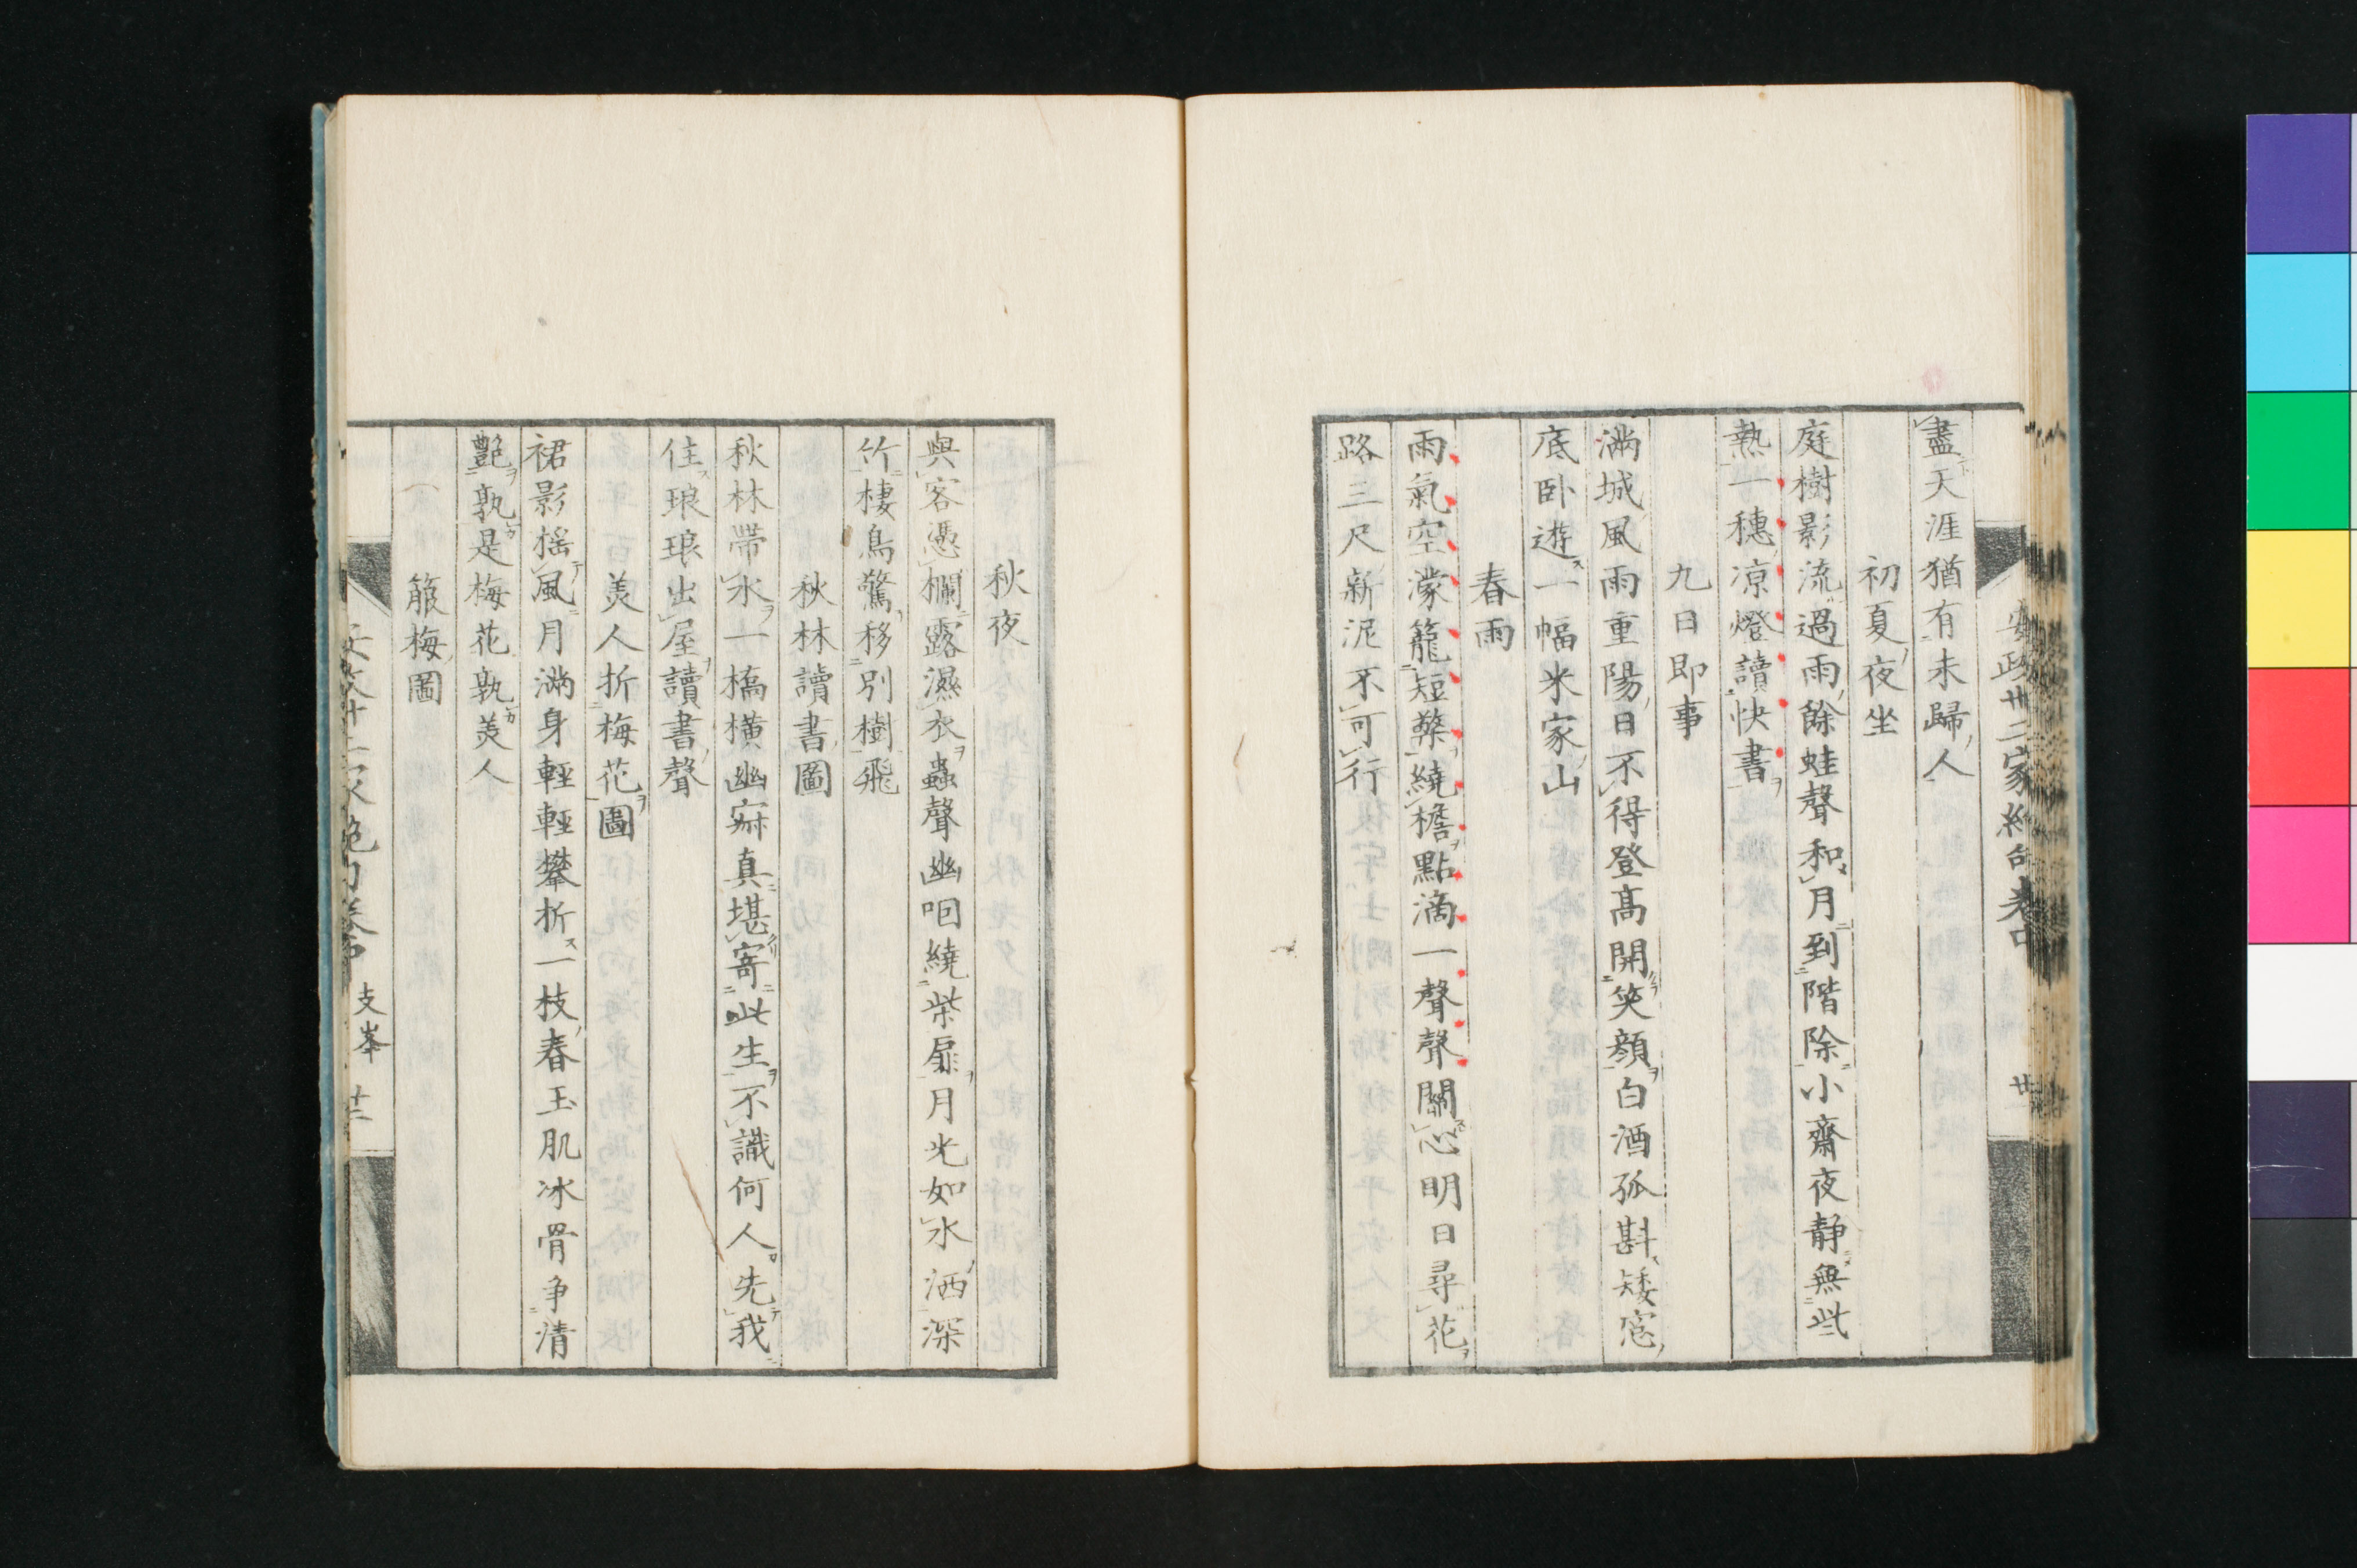 盡天涯猶有未歸人
初夏夜坐
庭樹影流過雨餘蛙聲和月到階除小齋夜静無些
熱一穗凉燈讀快書
九日即事
滿城風雨重陽日不得登高開笑顔白酒孤斟矮窓
底卧遊一幅米家山
春雨
雨氣空濛籠短檠繞檐點滴一聲聲關心明日尋花
路三尺新泥不可行
秋夜
與客憑欄露濕衣蟲聲幽咽繞柴扉月光如水洒深
竹棲鳥驚移別樹飛
秋林讀書圖
秋林帶水一橋橫幽寂真堪寄此生不識何人先我
住琅琅出屋讀書聲
美人折梅花圖
裙影摇風月滿身輕輕攀折一枝春玉肌冰骨争清
艷孰是梅花孰美人
簸梅圖
支峯